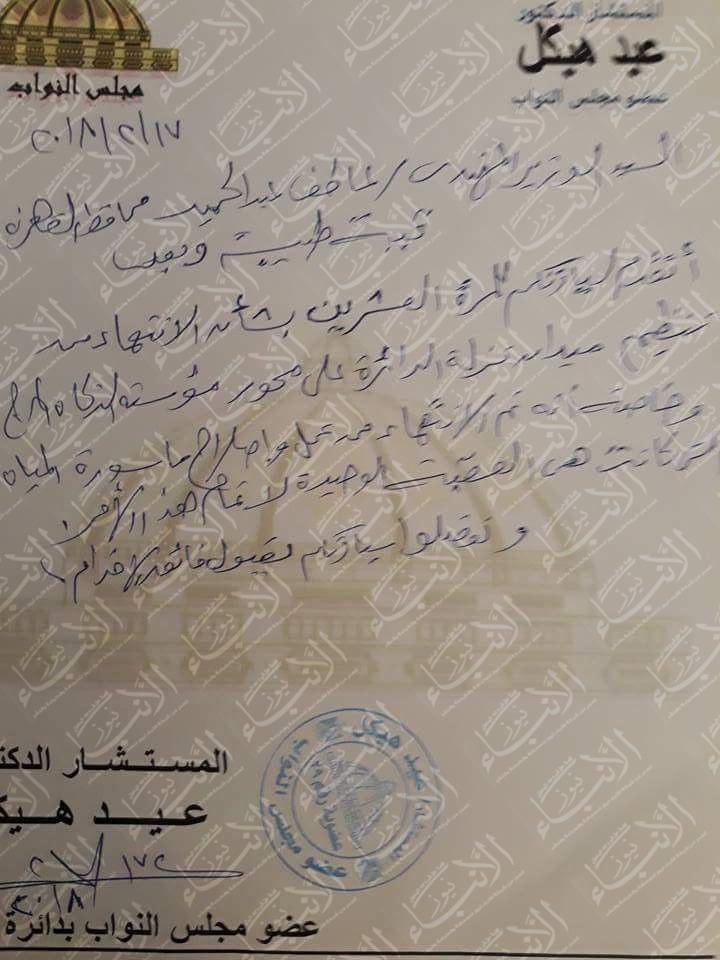 المستشار الدكتور
عيد هيكل
عضو مجلس النواب
مجلس النواب
٢٠١٨/٢/١٧
السيد الوزير المهندس / عاطف عبد الحميد محافظ القاهرة
تحية طيبة وبعد
أتقدم لسيادتكم للمرة العشرين بشأن الانتهاء من
تنظيم ميدان منزلة الدائرة على محور مؤسسة الزكاة المرج
وخاصة أنه تم الانتهاء من عمل وإصلاح ماسورة المياه
التى كانت هى العقبة الوحيدة لاتمام هذا الأمر.
وتفضلوا سيادتكم بقبول فائق الاحترام
المستشار الدكت
عيد هيك
عضو مجلس النواب بدائرة
المستشار/ عيد هيكل
عضو مجلس النواب
الأنباء نيوز